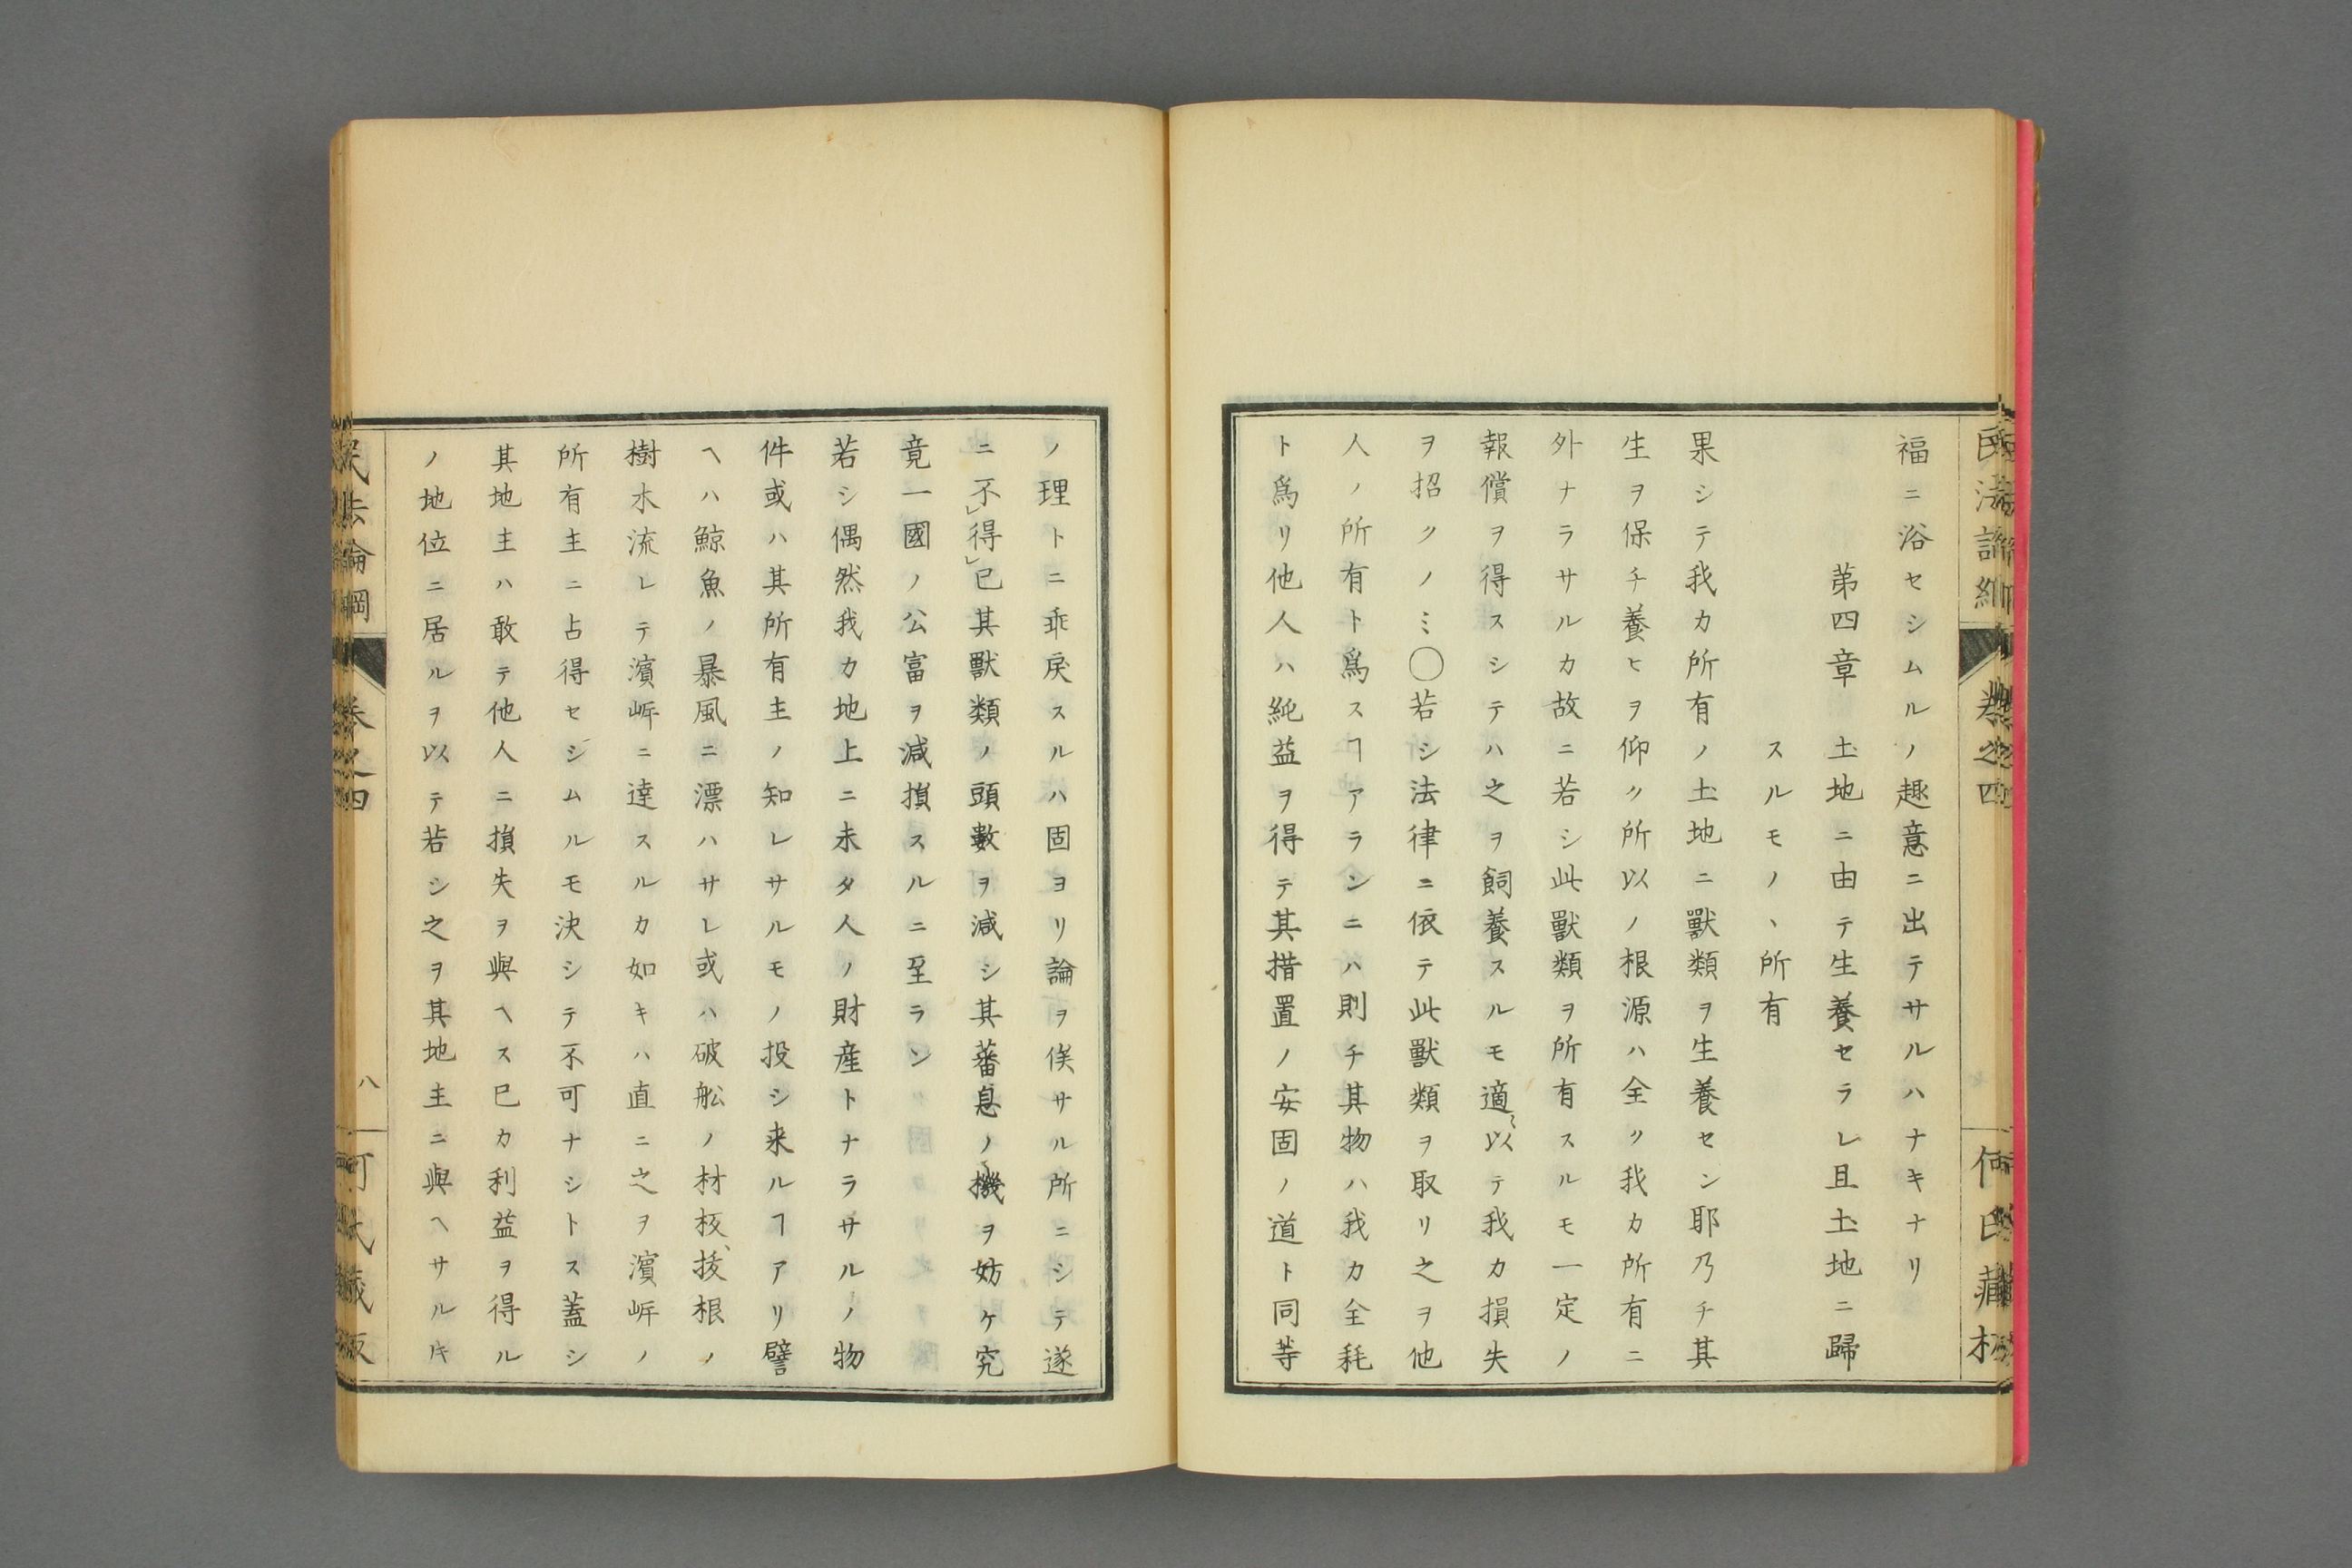 福ニ浴セシムルノ趣意ニ出テサルハナキナリ
第四章 土地ニ由テ生養セラレ且土地ニ歸
スルモノヽ所有
果シテ我カ所有ノ土地ニ獸類ヲ生養セン耶乃チ其
生ヲ保チ養ヒヲ仰ク所以ノ根源ハ全ク我カ所有ニ
外ナラサルカ故ニ若シ此獸類ヲ所有スルモ一定ノ
報償ヲ得スシテハ之ヲ飼養スルモ適以テ我カ損失
ヲ招クノミ〇若シ法律ニ依テ此獸類ヲ取リ之ヲ他
人ノ所有ト爲スヿアランニハ則チ其物ハ我カ全耗
ト爲リ他人ハ純益ヲ得テ其措置ノ安固ノ道ト同等
ノ理トニ乖戾スルハ固ヨリ論ヲ俟サル所ニシテ遂
ニ不レ得レ已其獸類ノ頭數ヲ減シ其蕃息ノ機ヲ妨ケ究
竟一國ノ公富ヲ減損スルニ至ラン
若シ偶然我カ地上ニ未タ人ノ財産トナラサルノ物
件或ハ其所有主ノ知レサルモノ投シ来ルヿアリ譬
ヘハ鯨魚ノ暴風ニ漂ハサレ或ハ破船ノ材板、拔根ノ
樹水流レテ濱岸ニ達スルカ如キハ直ニ之ヲ濱岸ノ
所有主ニ占得セシムルモ決シテ不可ナシトス蓋シ
其地主ハ敢テ他人ニ損失ヲ與ヘス已カ利益ヲ得ル
ノ地位ニ居ルヲ以テ若シ之ヲ其地主ニ與ヘサルキ
民法論綱 卷之四 八 何氏藏板